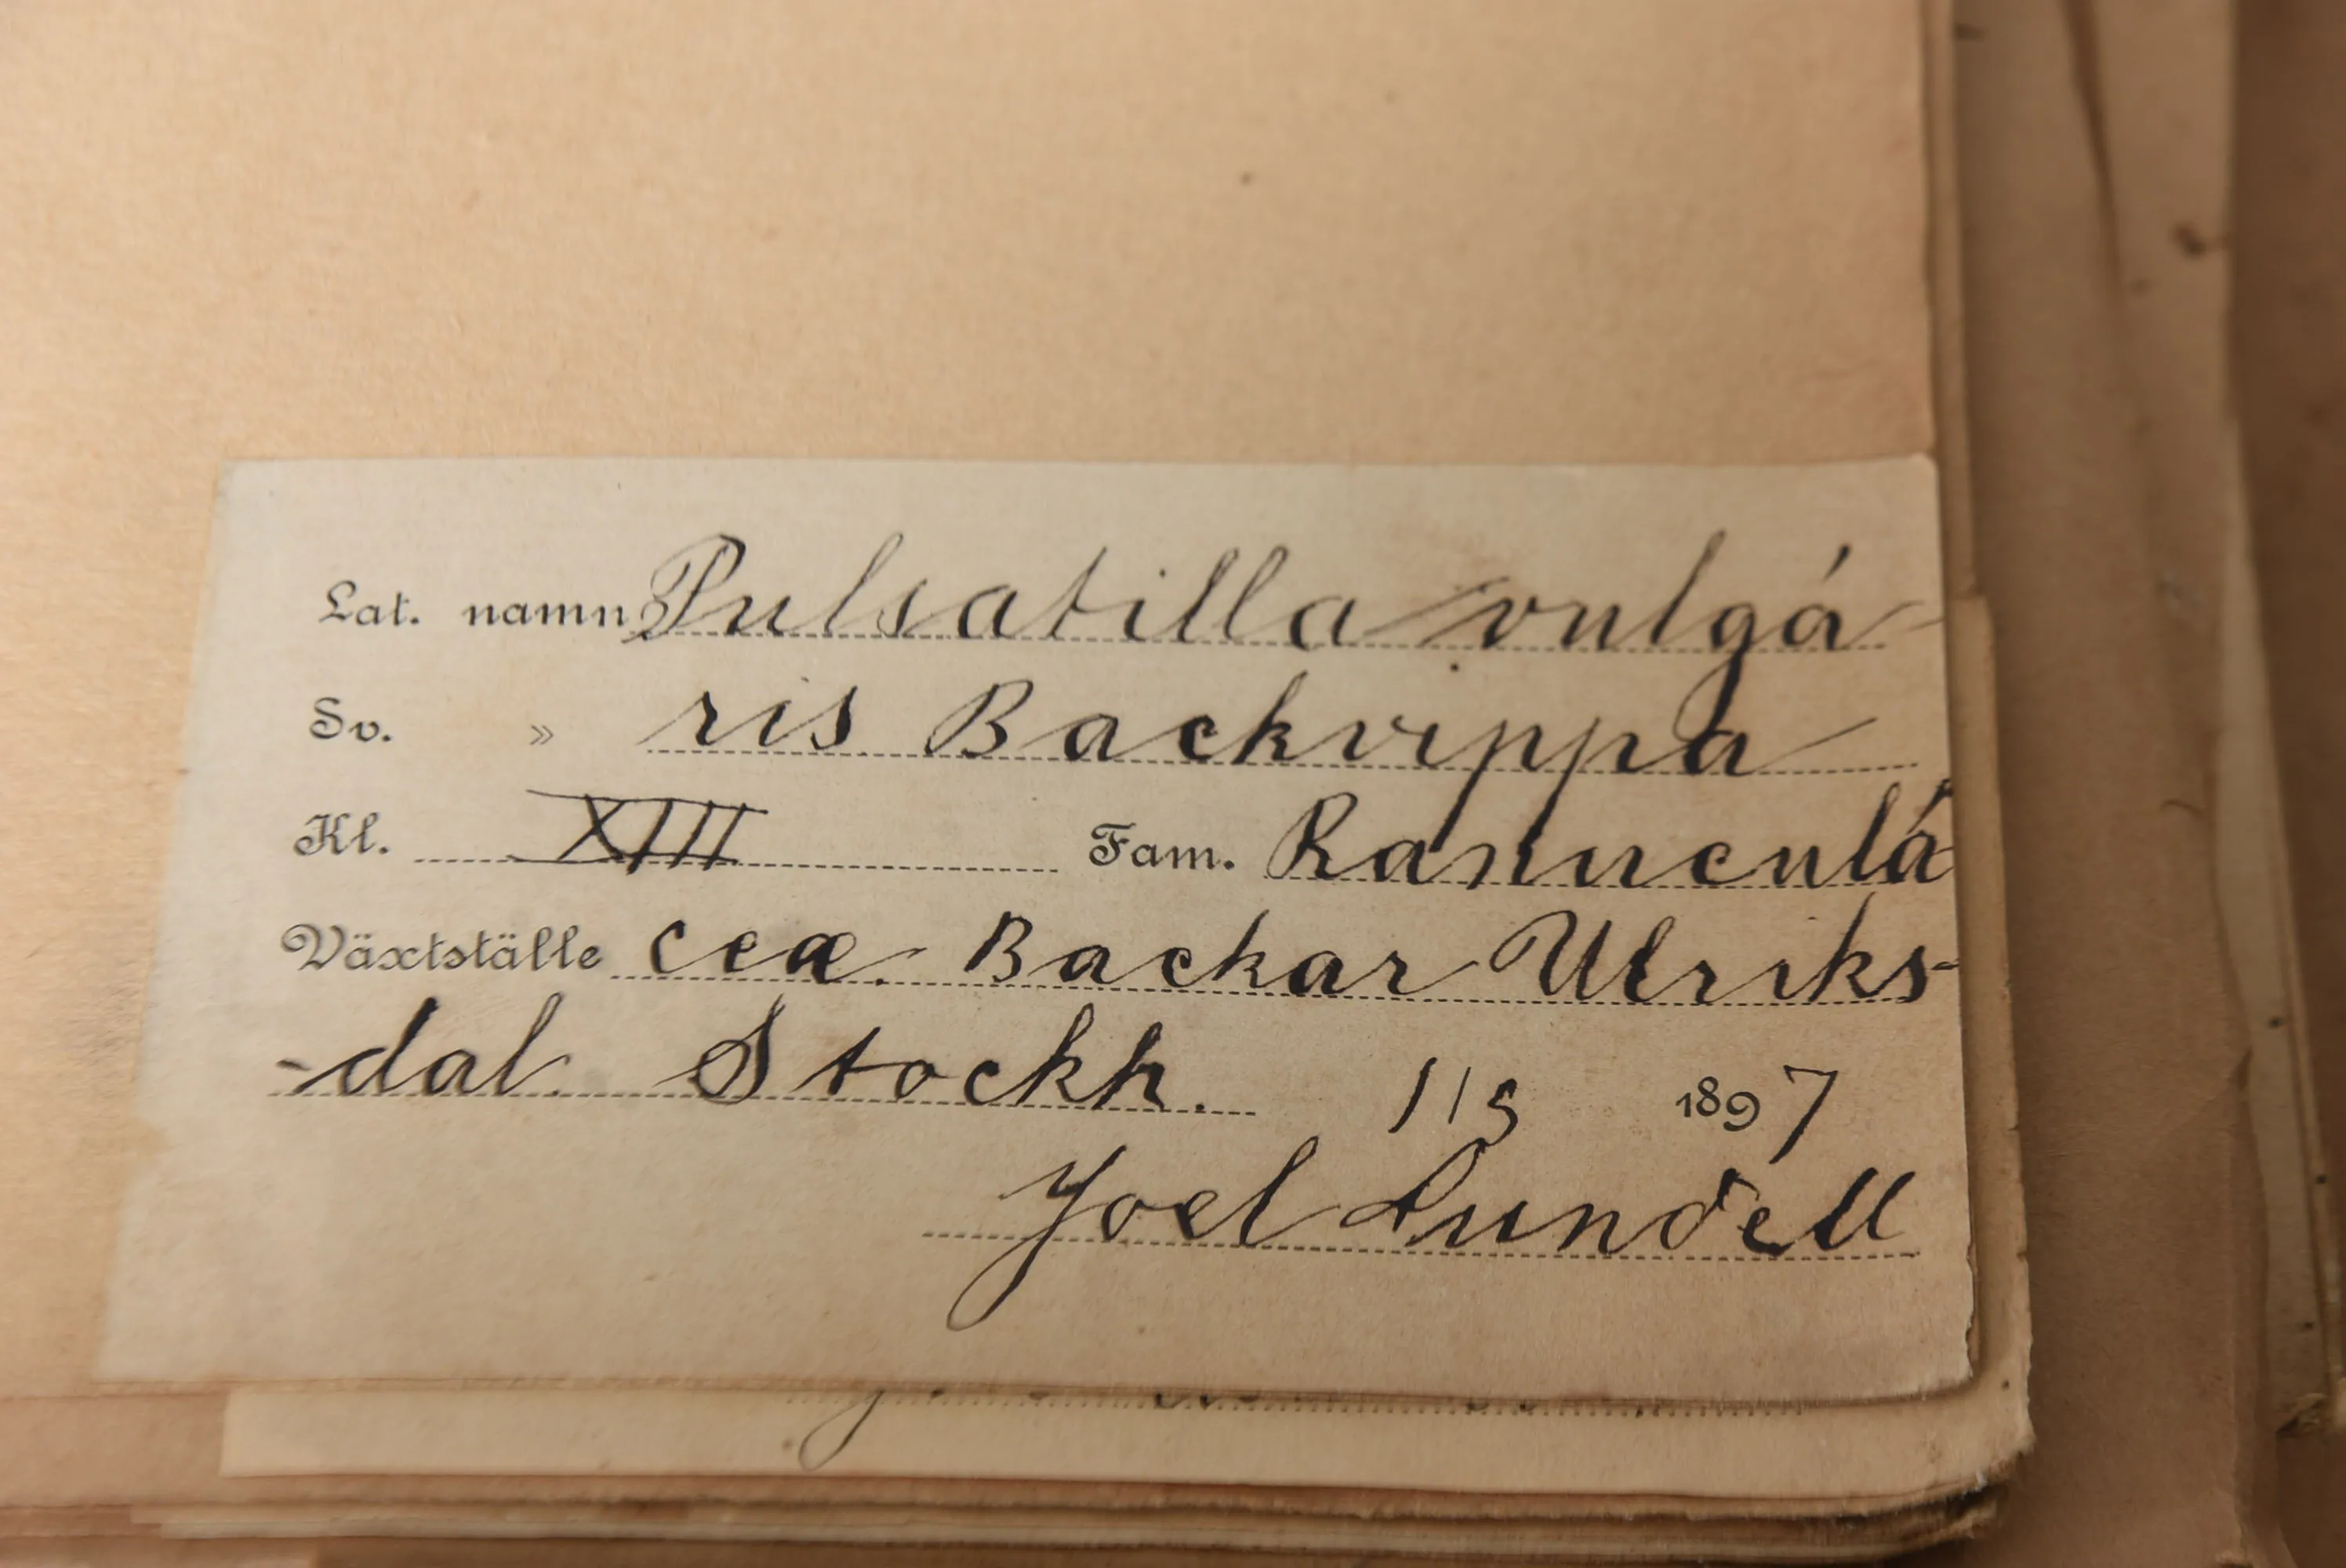 Lat. namn Pulsatilla vulgá-
Sv. » ris Backvippa
Kl. XIII Fam. Rannculá
Växtställe ceæ. Backar Ulriks-
-dal. Stockh. 1/5 1897
Joel Lundell